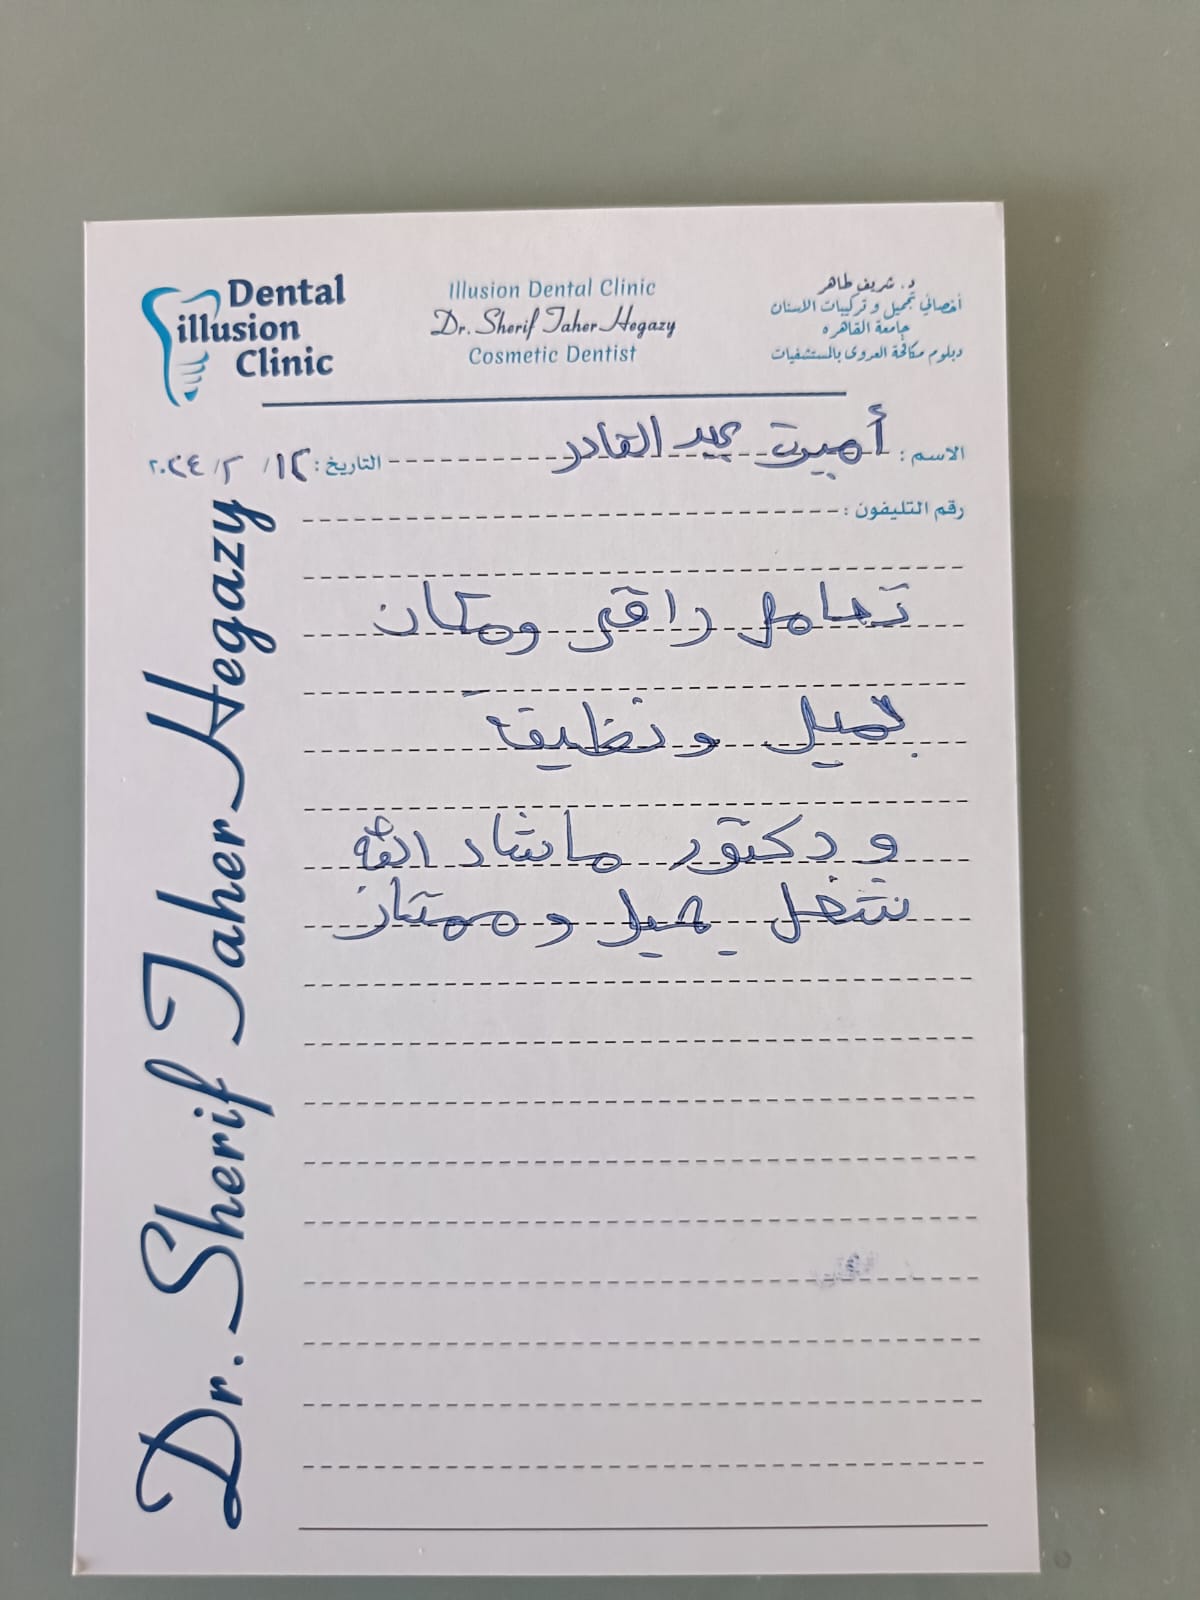 Dental
illusion
Clinic
Illusion Dental Clinic
Dr. Sherif Taher Hegazy
Cosmetic Dentist
د. شريف طاهر
أخصائي تجميل و تركيبات الاسنان
جامعة القاهره
دبلوم مكافحة العدوى بالمستشفيات
الاسم : أميرت عبد القادر
التاريخ : ١٢ / ٢ / ٢٠٢٤
رقم التليفون :
تعامل راقي ومكان
جميل ونظيفة
و دكتور ماشاد الله
شغل جميل و ممتاز
Dr. Sherif Taher Hegazy